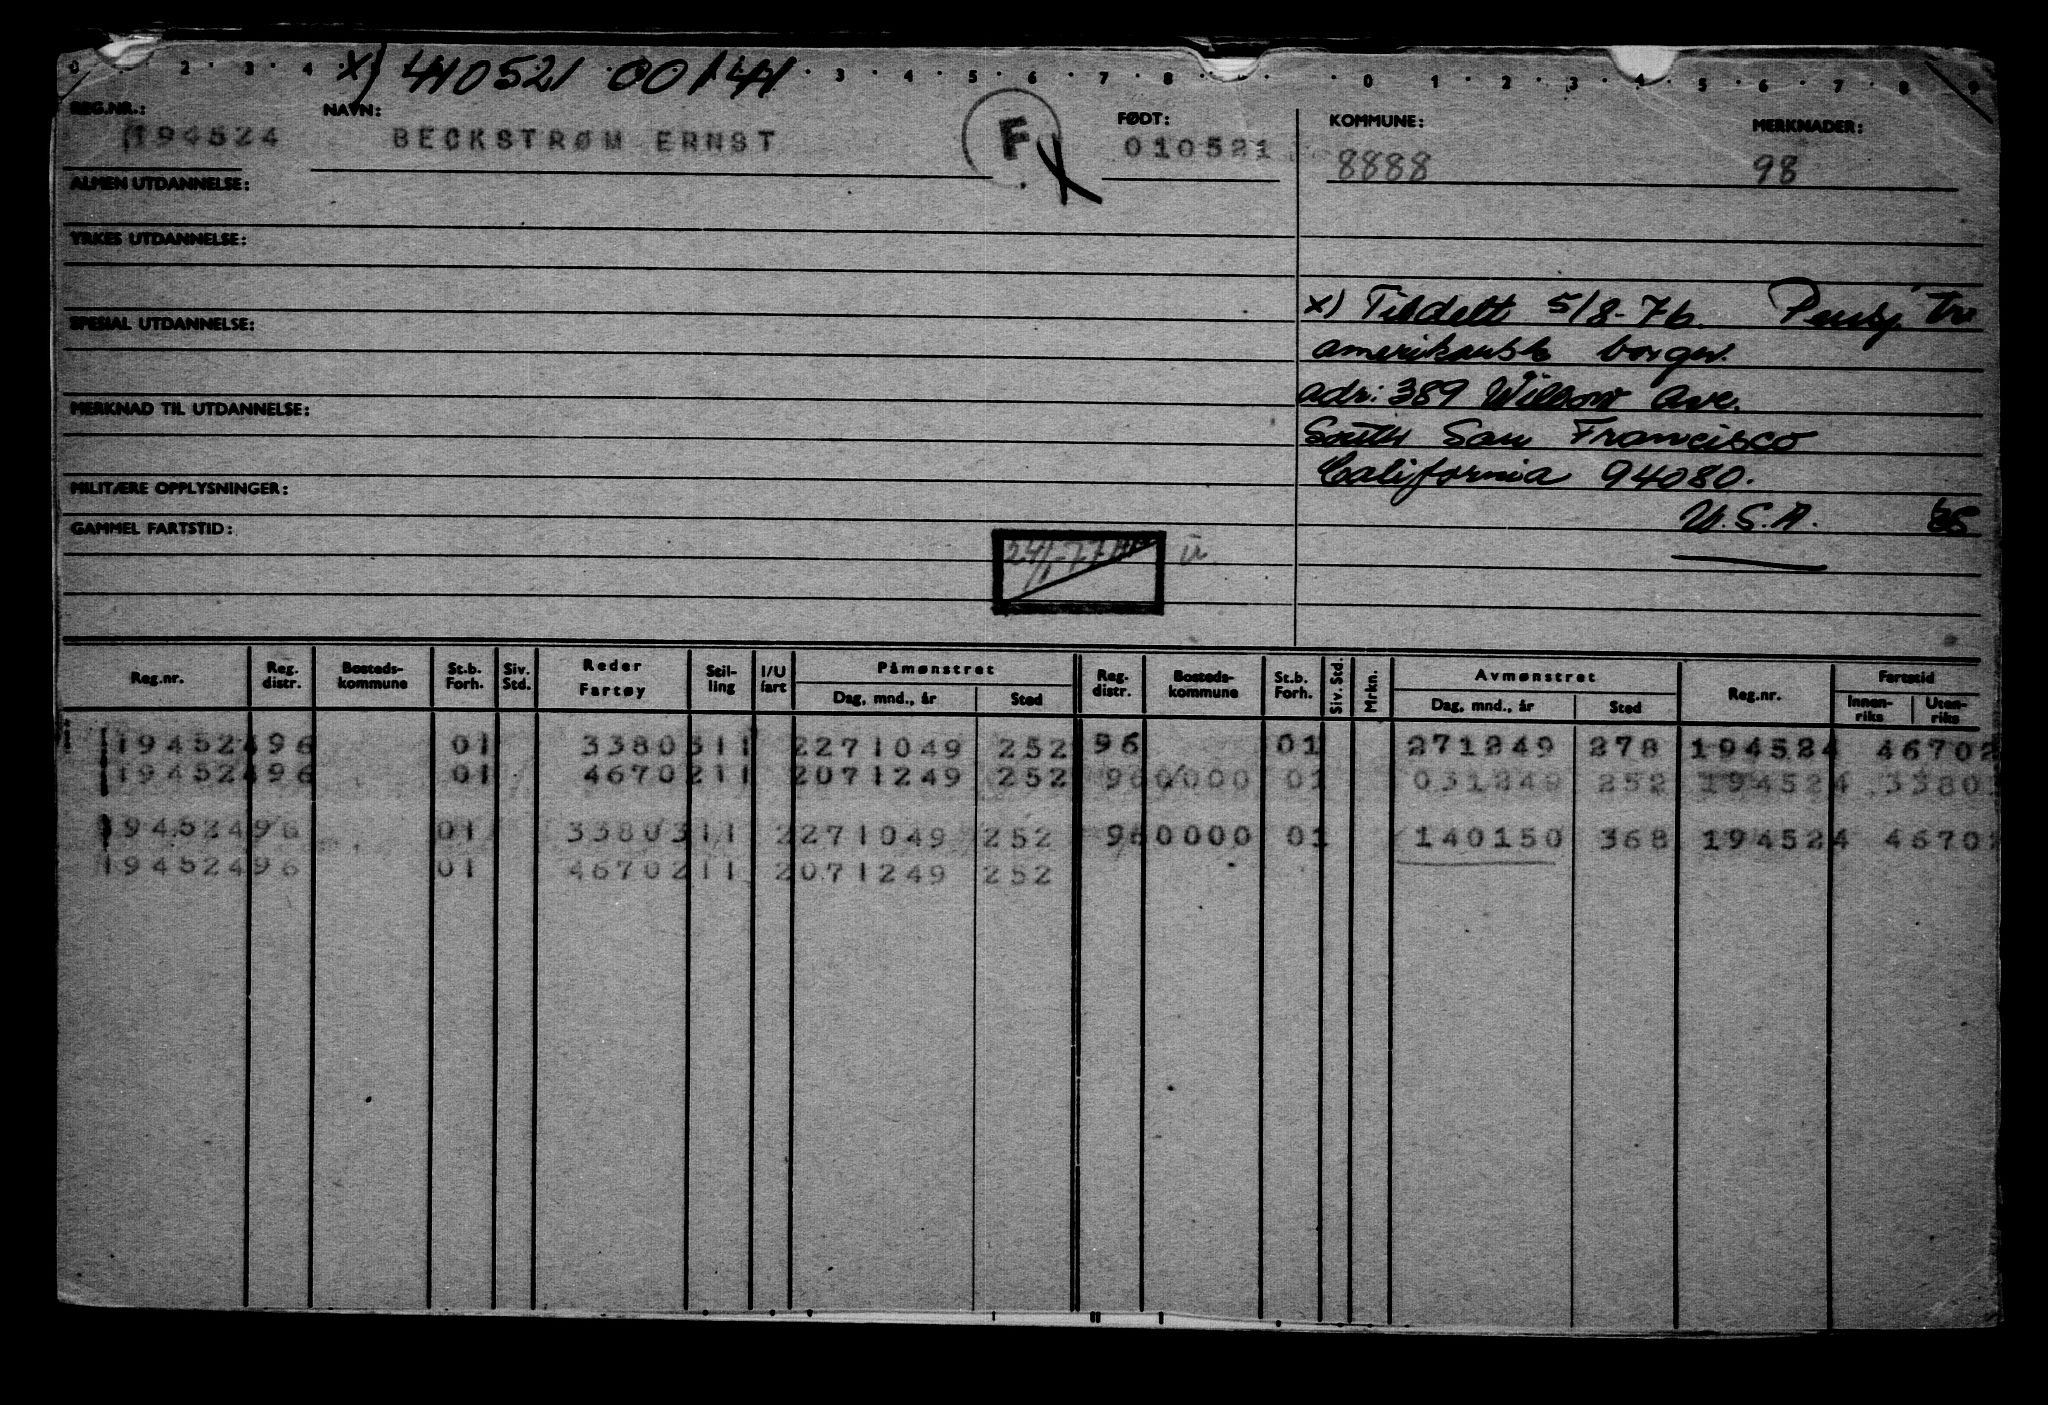 0 2 3 4 x) 410521 00141 3 4 5 6 7 8 0 1 2 3 4 5 6 7 8 9
REG.NR.: NAVN: FØDT: KOMMUNE: MERKNADER:
194524 BECKSTRØM ERNST F 010521 8888 98
ALMEN UTDANNELSE:
YRKES UTDANNELSE:
SPESIAL UTDANNELSE:
MERKNAD TIL UTDANNELSE:
MILITÆRE OPPLYSNINGER:
GAMMEL FARTSTID:
x) Tildelt 5/8-76.
amerikansk borger.
adr: 389 Willow Ave.
South San Francisco
California 94080.
U.S.A.
24/1-77
Reg.nr. Reg. distr. Bosteds-kommune St.b. Forh. Siv. Std. Reder Fartøy Stil-ling I/U fart Påmønstret Dag, mnd., år Sted Reg. distr. Bosteds-kommune St.b. Forh. Siv. Std. Mrkn. Avmønstret Dag, mnd., år Sted Reg.nr. Fartstid Innen-riks Uten-riks
194524 96 01 33803 11 2 271049 252 96 01 271249 278 194524 46702
194524 96 01 46702 11 2 071249 252 96 0000 01 031249 252 194524 3380
194524 96 01 33803 11 2 271049 252 96 0000 01 140150 368 194524 4670
194524 96 01 46702 11 2 071249 252